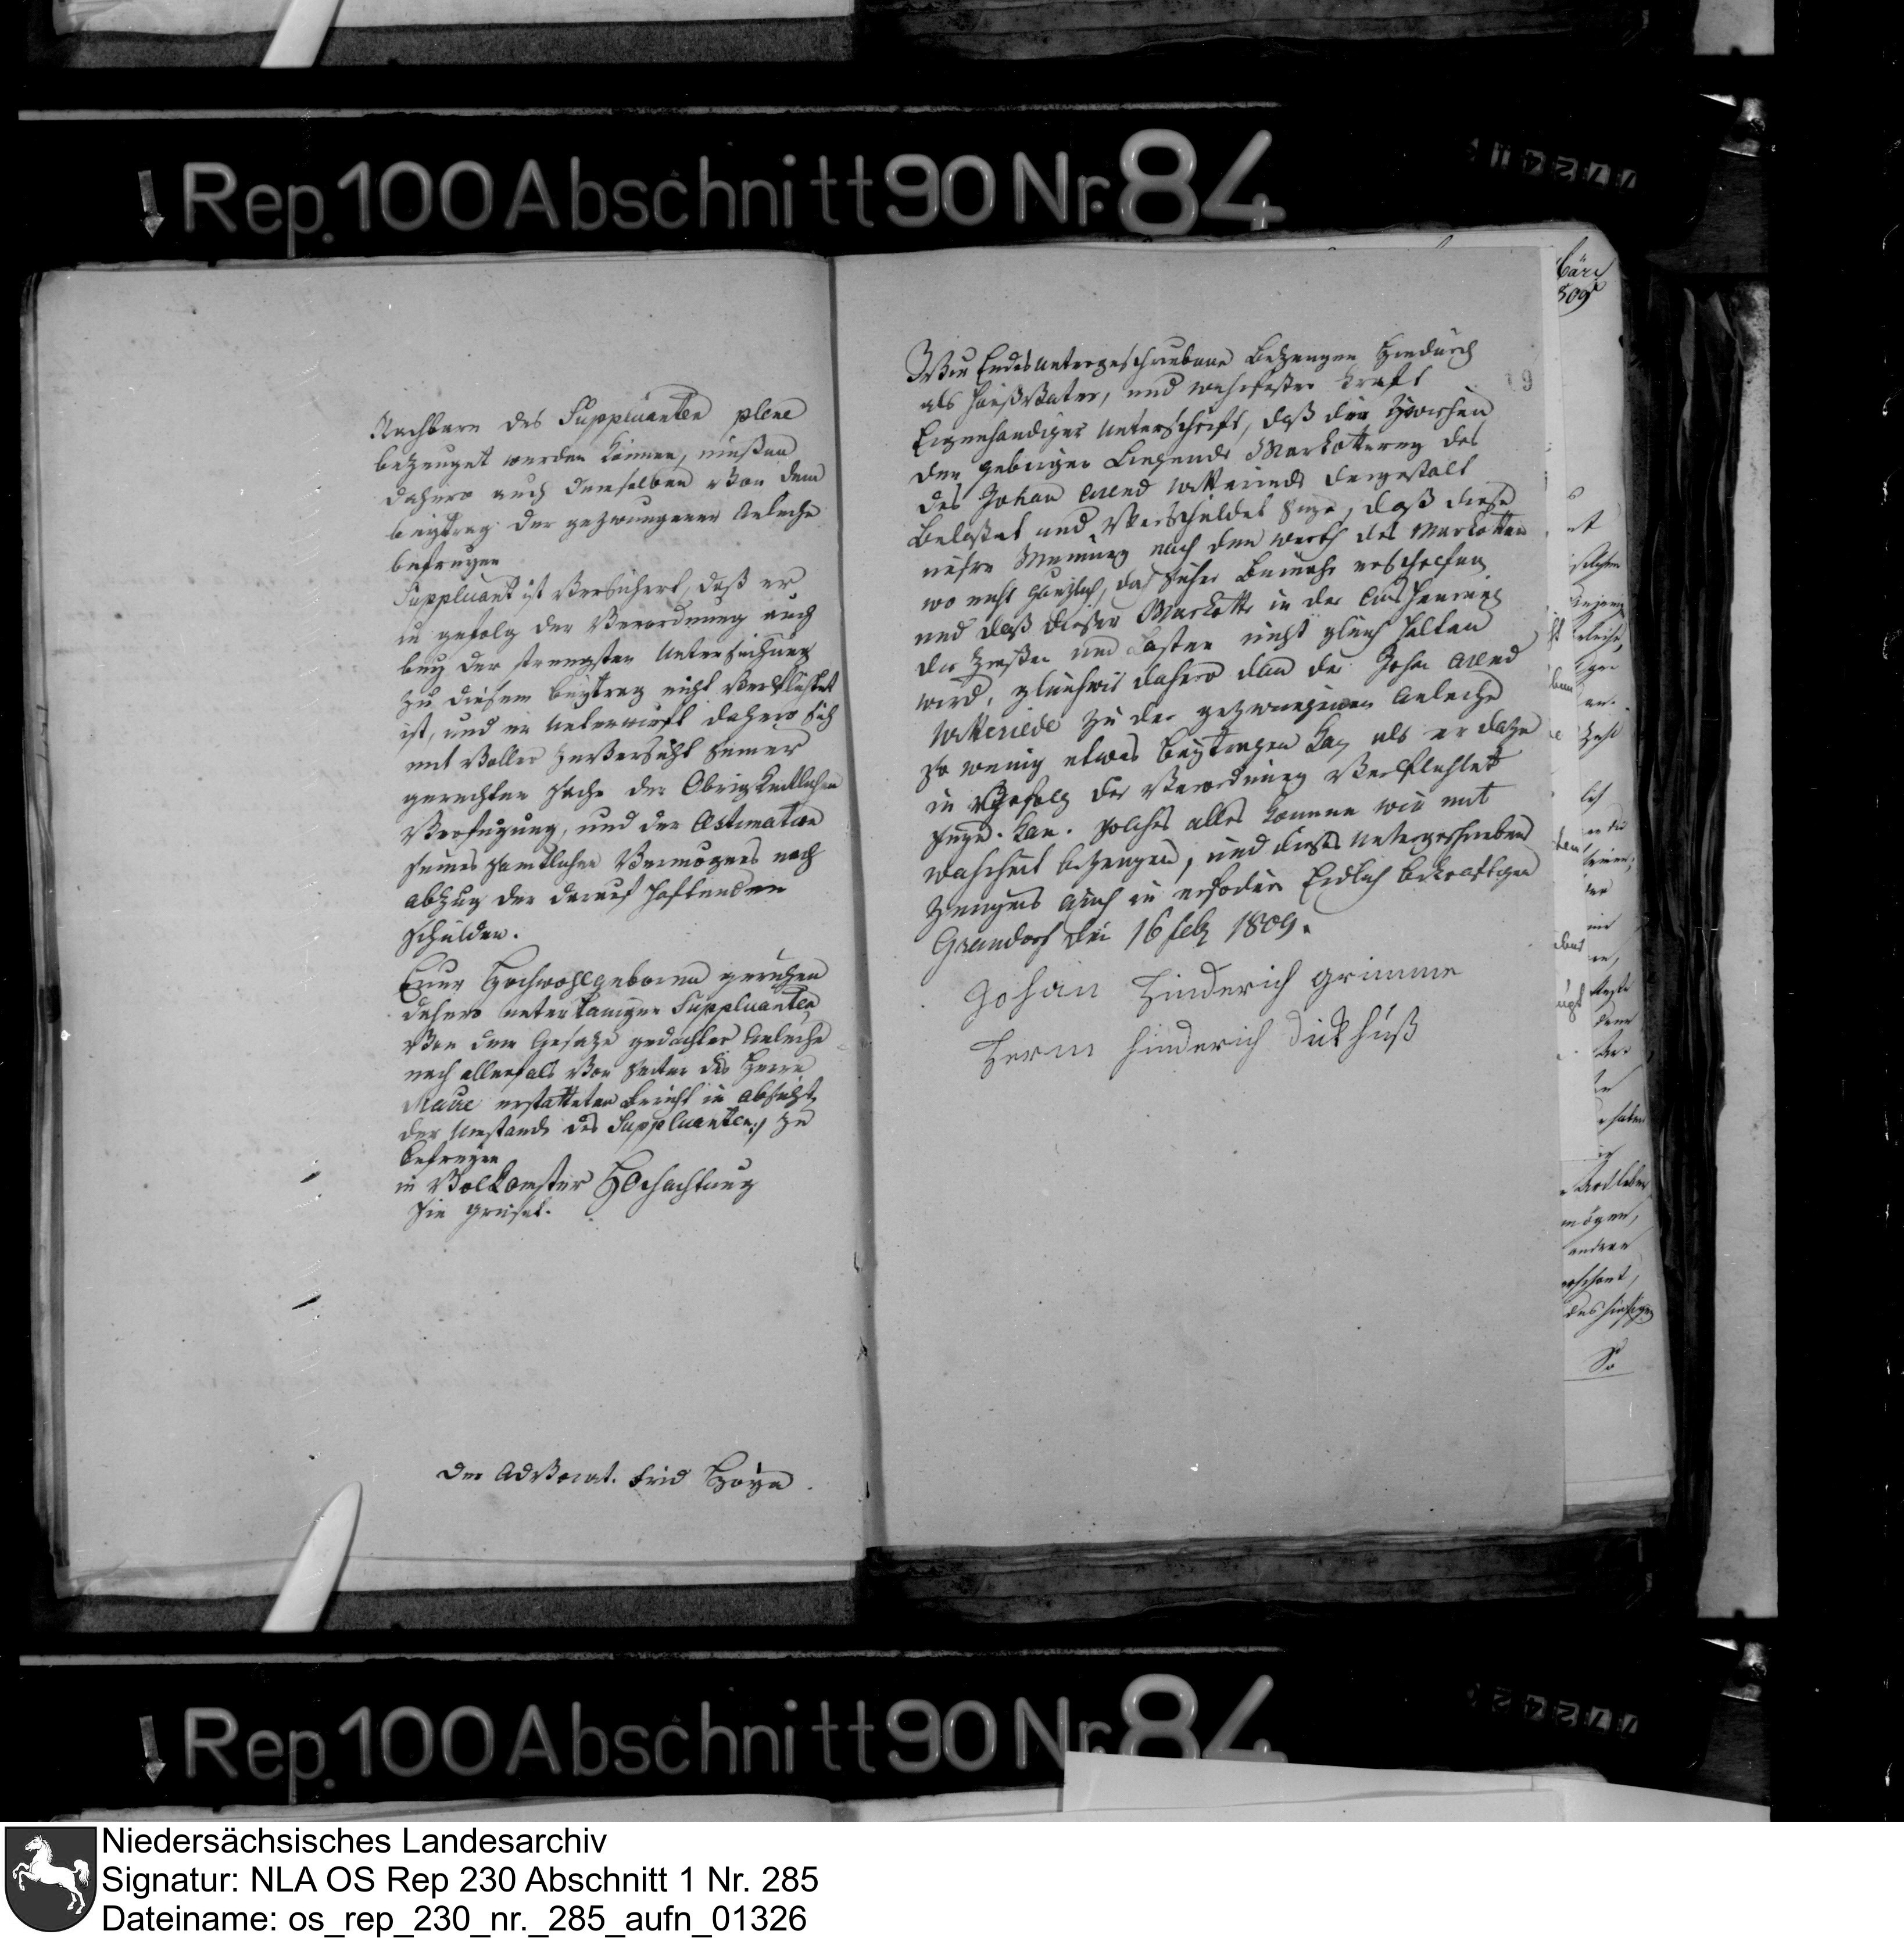 Rep. 100 Abschnitt 90 Nr. 84
Nachbarn des Supplicanten plene
bezeuget werden können, müßen
dahero auch denselben von dem
beytrag der gezwungenen Anleihe
befreyen
Supplicant ist versichert, daß er
in gefolg der Verordnung auch
bey der strengsten Untersuchung
zu diesem beytrag nicht verpflichtet
ist, und er unterwirft dahero sich
mit voller Zuversicht seiner
gerechten Sache der Obrigkeitlichen
Verfugung, und der Æstimation
seines samtlichen Vermögens nach
abzug der darauf haftenden
Schulden.
Euer Hochwohlgeboren geruhen
dahero unterthanigen Supplicanten
von dem Gesatze gedachter Anleihe
nach allenfals von seiten des Herrn
Maire erstatteten Bericht in absicht
der Umstande des Supplicanten zu
befreyen
in Volkomster Hochachtung
Sie grüset.
Der Advocat. Frid Hoya.
Wir Endes untergeschriebene bezeugen Hiedurch
als Haußvater, und wahrhafter kraft
Eigenhandiger Unterschrift, daß die zwischen
den gebrüger Liegende Markotterey des
des Johan Arend Witteriede dergestalt
belastet und Verschuldet seye, daß diese
unsre Meinung nach den werth des Markotten
wo nicht ganzlich, doch sicher beinahe erschöpfen
und daß dieser Markotte in der
der großen und Lasten nicht gleich halten
wird, gleichwie dahero dan der Johan Arend
Witteriede zu der gezwungenen Anleihe
so wenig etwas beytragen kan als er dazu
in Gefolg der Verordnung Verpflichtet
seyn kan. solches alles können wir mit
wahrheit bezeugen, und dieses untergeschriebene
Zeugnis auch in erfodern Eidlich bekraftigen
Grandorf den 16 feb 1809.
Johan Hinderich Grimme
Herm Hinderich Dickhuß
Rep. 100 Abschnitt 90 Nr. 84
Niedersächsisches Landesarchiv
Signatur: NLA OS Rep 230 Abschnitt 1 Nr. 285
Dateiname: os_rep_230_nr._285_aufn_01326